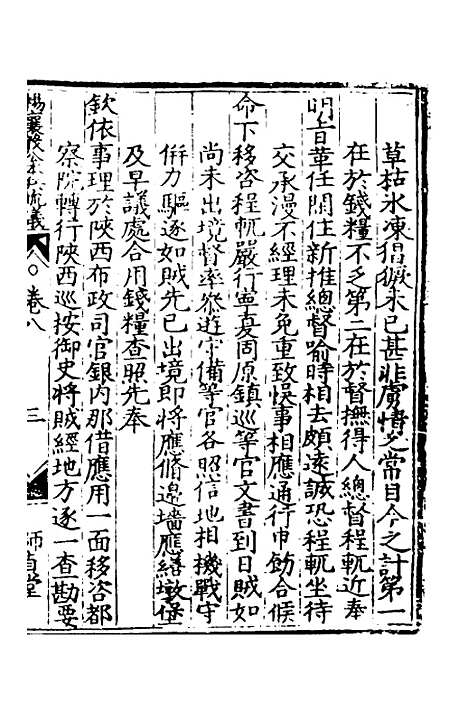 草枯水凍猖獗未已甚非虜情之常目今之計第一
在於錢糧不乏第二在於督撫得人總督程軏近奉
明旨革任閑住新推總督喻時相去頗遠誠恐程軏坐待
交承漫不經理未免重致悞事相應通行申飭合候
命下移咨程軏嚴行寧夏固原鎮巡等官文書到日賊如
尚未出境督率叅遊守備等官各照信地相機戰守
併力驅逐如賊先已出境即將應脩邊墻應繕墩堡
及早議處合用錢糧查照先奉
欽依事理於陝西布政司官銀內那借應用一面移咨都
察院轉行陝西巡按御史將賊經地方逐一查勘要
楊襄毅公本兵疏議
卷八
三
師貞堂